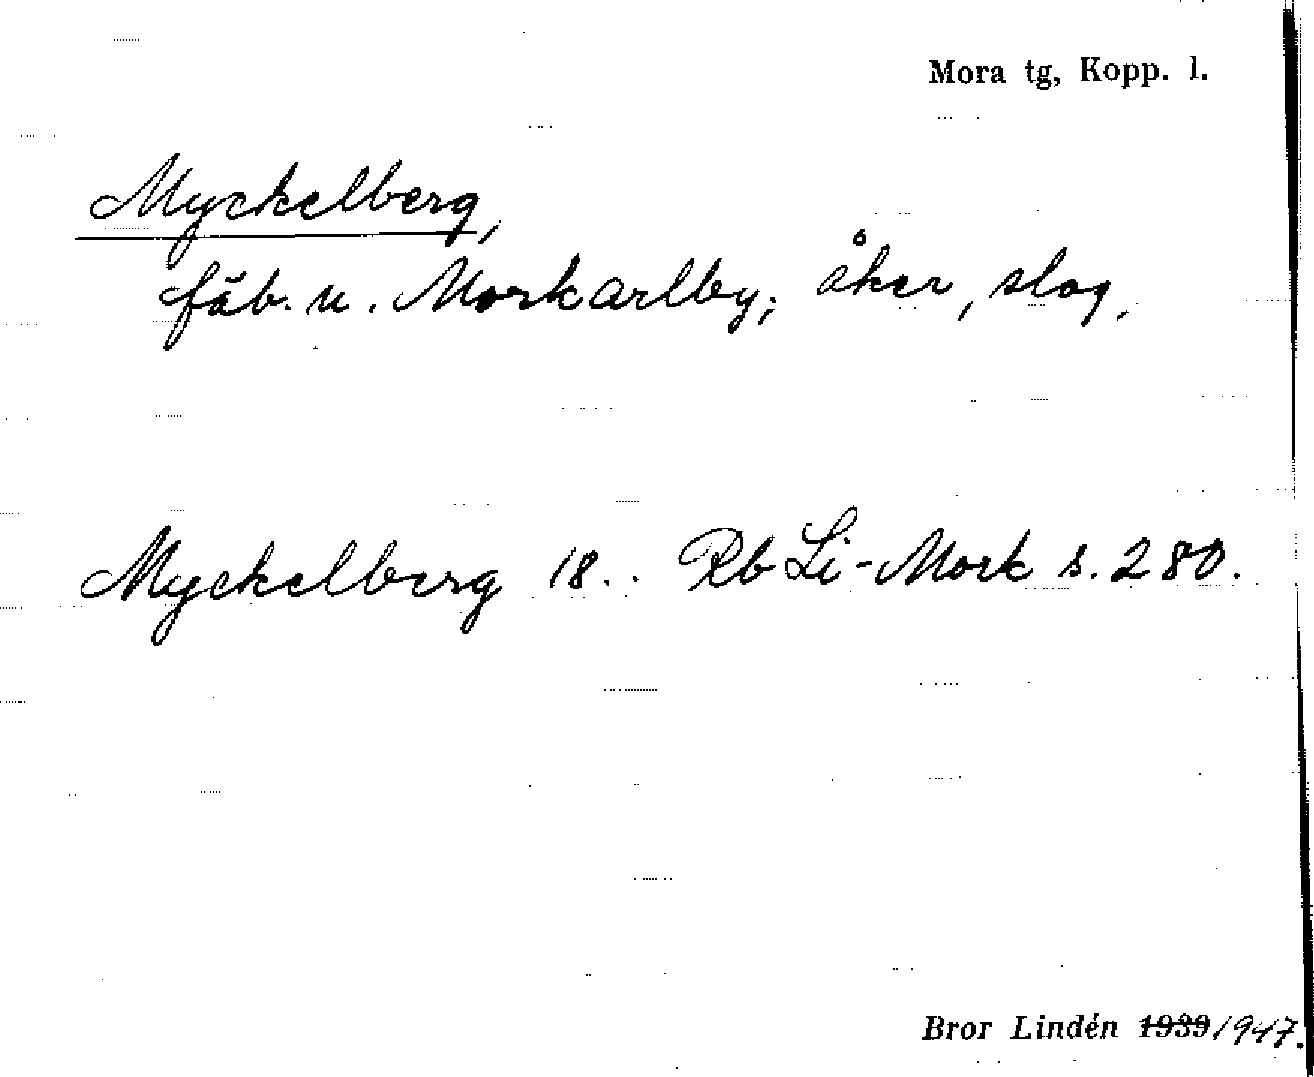 Mora tg, Kopp. l.
Myckelberg,
fäb. u. Morkarlby; åker, slog.
Myckelberg 18.. Rb Li-Mork s. 280.
Bror Lindén 1939 1947.